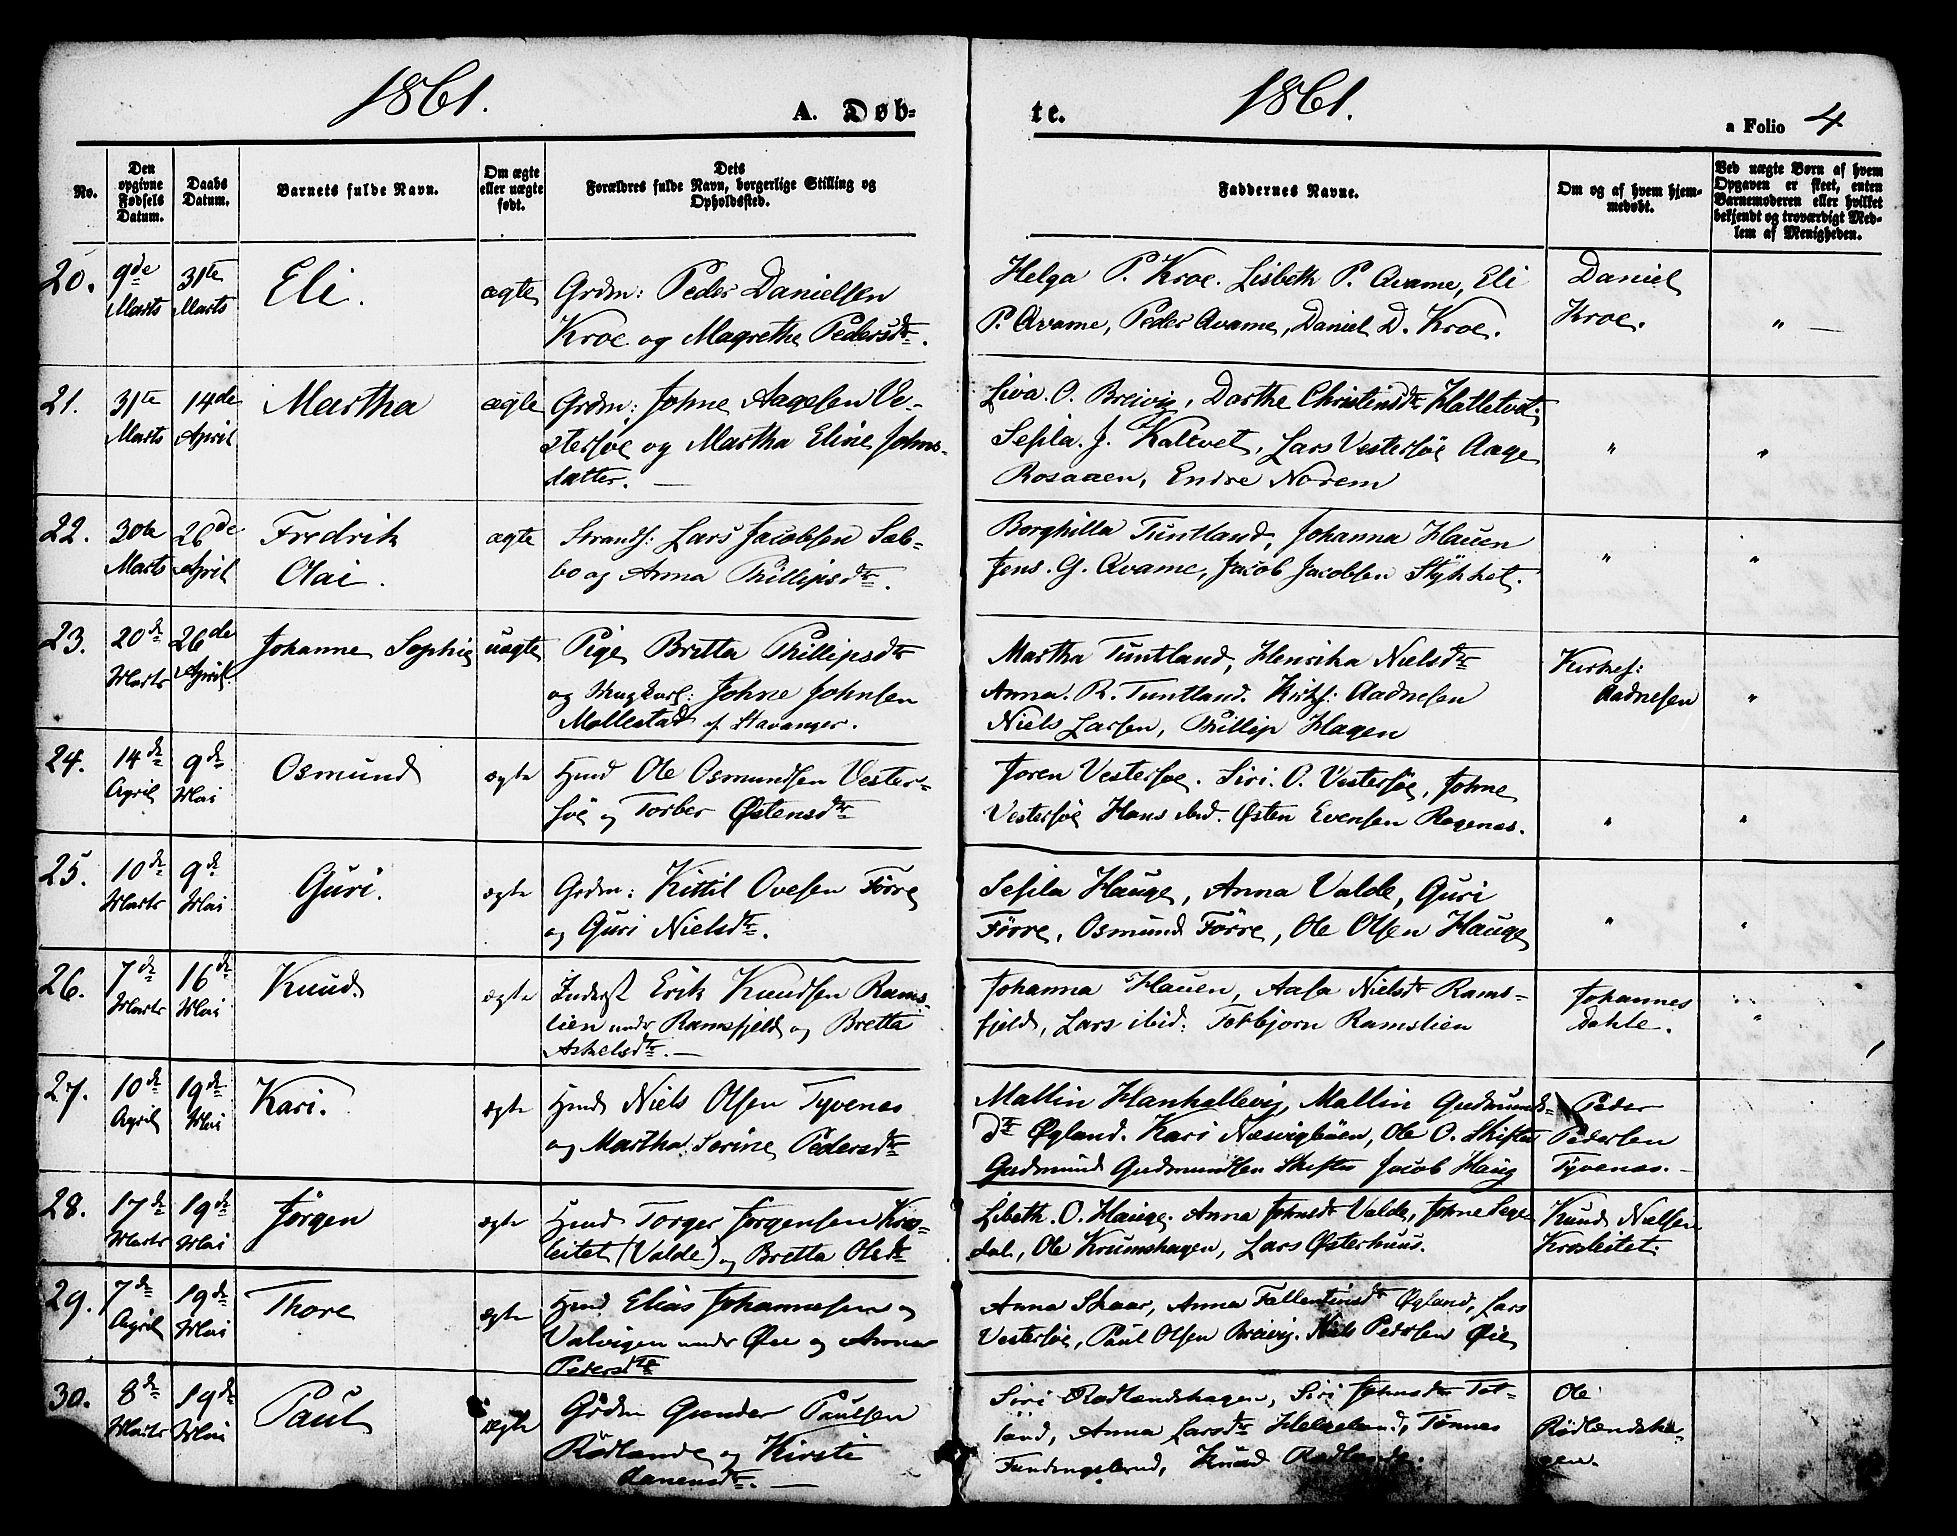 1861. A. Døb=
te. 1861. a Folio 4
No.
Den opgivne Fødsels Datum.
Daabs Datum.
Barnets fulde Navn.
Om ægte eller uægte født.
Dets Forældres fulde Navn, borgerlige Stilling og Opholdssted.
Faddernes Navne.
Om og af hvem hjemmedøbt.
Ved uægte Børn af hvem Opgaven er skeet, enten Barnemoderen eller hvilket bekjendt og troværdigt Medlem af Menigheden.
20. 9de Marts 31te Marts Eli. ægte
Grdm: Peder Danielsen
Kroe og Magrethe Pedersdtr.
Helga P. Kroe. Lisbeth P. Qvame, Eli
P. Qvame, Peder Qvame, Daniel D. Kroe.
Daniel
Kroe.
" —
21. 31te Marts 14de April Martha ægte
Grdm: Johne Aagesen Ve-
stersøe og Martha Eline Johns-
datter. —
Liva O. Breivig, Dorthe Christensdtr
Sesila J. Kaltvet, Lars Vestersøe Aage
Rosaaen, Endre Norem
" "
22. 30te Marts 26de April Fredrik
Olai.
ægte
Strands: Lars Jacobsen Sæb-
bo og Anna Phillipsdtr.
Borghilla Tuntland, Johanna Hauen
Jens G. Qvame, Jacob Jacobsen Stykket.
" "
23. 20de Marts 26de April Johanne Sophie uægte
Pige Britta Phillipsdtr
og Ungkarl: Johne Johnsen
Mollestad af Stavanger.
Martha Tuntland, Henrika Nielsdtr
Anna R. Tuntland. Kirks: Aadnesen
Niels Larsen, Phillip Hagen
Kirkes:
Aadnesen
"
24. 14de April 9de Mai Osmund ægte
Hmd Ole Osmundsen Vester-
søe og Torber Østensdtr
Joren Vestersøe. Siri O. Vestersøe, Johne
Vestersøe Hans ibid. Østen Evensen Ragenes.
" "
25. 10de Marts 9de Mai Guri. ægte
Grdm: Kittil Ovesen Førre
og Guri Nielsdtr.
Sesila Hauge, Anna Valde, Guri
Førre, Osmund Førre, Ole Olsen Hauge
" "
26. 7de Marts 16de Mai Knud ægte
Inderst Erik Knudsen Rams-
lien under Ramsfjeld og Bretta
Askelsdtr. —
Johanna Hauen, Aasa Nielsdtr Rams-
fjeld, Lars ibid: Torbjorn Ramslien
Johannes
Dahle.
"
27. 10de April 19de Mai Kari. ægte
Hmd Niels Olsen Tyvenæs
og Martha Serine Pedersdtr
Mallin Hanhallevig, Mallin Gudmunds-
dtr Øgland. Kari Næsvigbøen, Ole O. Skiftes
Gudmund Gudmundsen Skiftes Jacob Haug
Peder
Pedersen
Tyvenæs. -
28. 17de Marts 19de Mai Jørgen ægte
Hmd Torger Jørgensen Kros-
leitet (Valde) og Bretta Olsdtr
Libeth O. Hauge. Anna Johnsdtr Valde, Johne Sege
dal, Ole Krumshagen, Lars Østerhuus.
Knud Nielsen
Krosleitet.
29. 7de April 19de Mai Thore ægte
Hmd Elias Johannesen
Valvigen under Øie og Anna
Pedersdtr
Anna Skaar, Anna Fallentinsdtr Øgland, Lars
Vestersøe, Paul Olsen Breivig. Niels Pedersen Øie
30. 8de Marts 19de Mai Paul ægte
Grdm Gunder Paulsen
Rødlande og Kirsti
Siri Rødlandshagen, Siri Johnsdtr Tot-
land, Anna Larsdtr Helgeland, Tønnes
Knud Rødlande.
Ole
Rødlandsha-
gen.